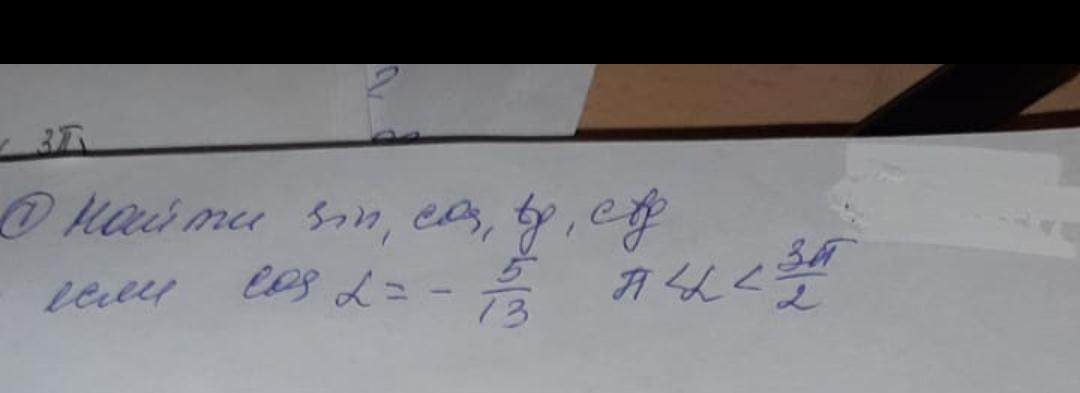 2
3π
① Найти sin, cos, tg, ctg
если cos α = - 5/13 π < α < 3π/2